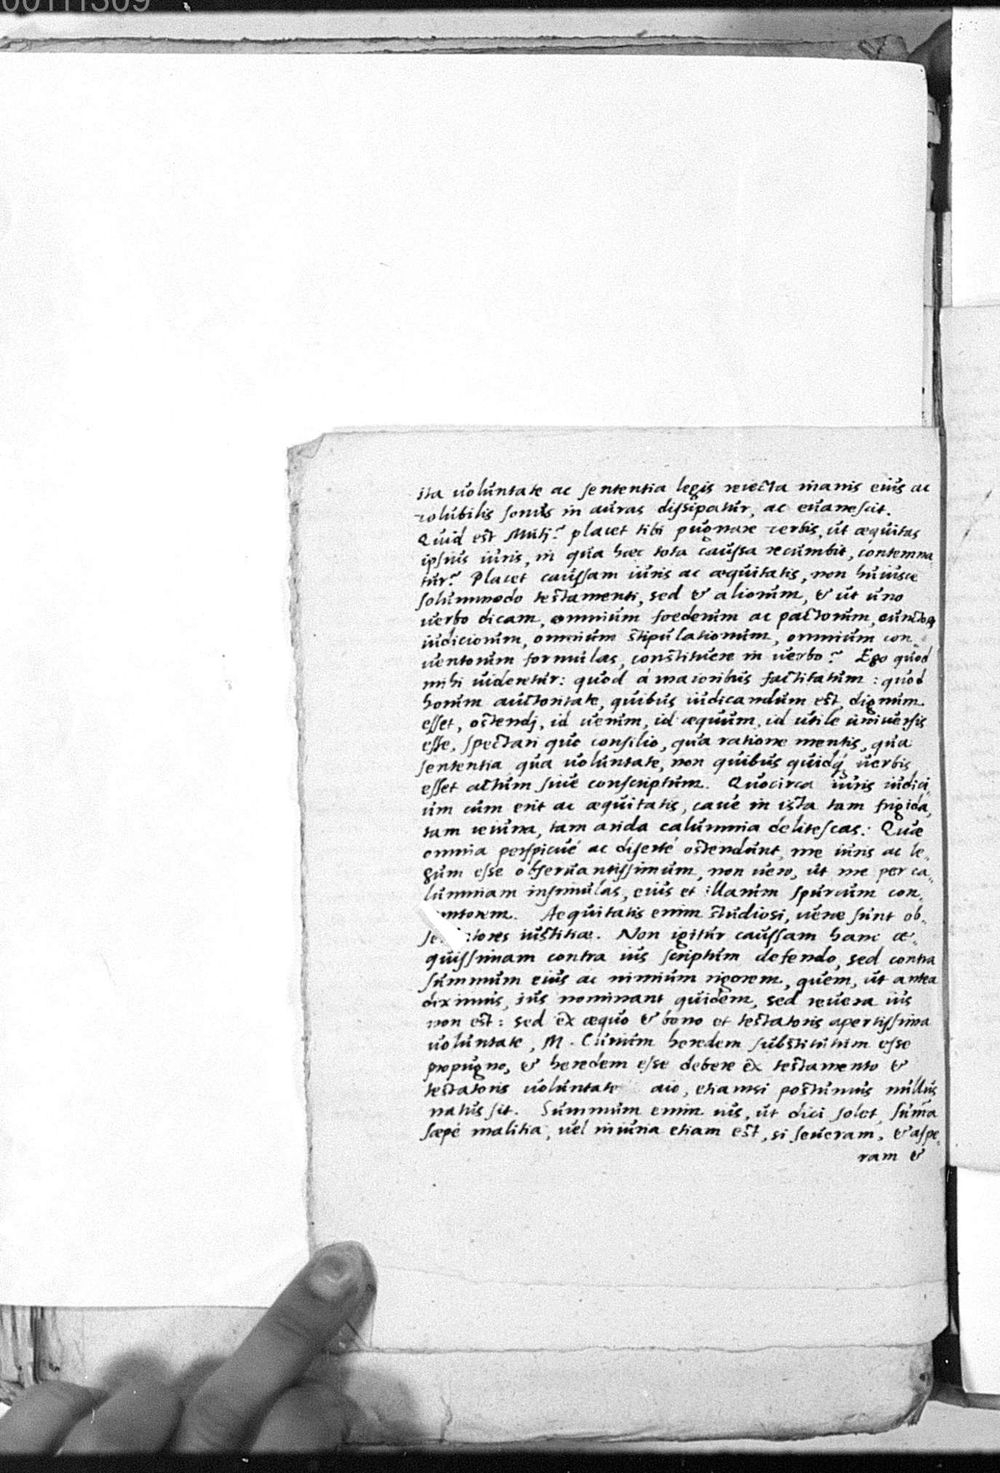 00111309
ita voluntate ac sententia legis reiecta inanis eius ac
volubilis sonus in auras dissipatur, ac evanescit.
Quid est Muti? placet tibi pugnare verbis, ut æquitas
ipsius iuris, in qua hæc tota caussa recumbit, contemna
tur? Placet caussam iuris ac æquitatis, non huiusce
solummodo testamenti, sed & aliorum, & ut uno
verbo dicam, omnium foederum ac pactorum,
iudiciorum, omnium stipulationum, omnium con
ventorum formulas, constituere in verbo? Ego quod
mihi videretur: quod á maioribus factitatum: quod
horum auctoritate, quibus iudicandum est, dignum
esset, ostendi, id verum, id æquum, id utile universis
esse, spectari quo consilio, qua ratione mentis, qua
sententia qua voluntate, non quibus quidq; verbis
esset actum sive conscriptum. Quocirca iuris iudici
um cum erit ac æquitatis, cave in ista tam frigida,
tam ieiuna, tam arida calumnia delitescas: Quæ
omnia perspicué ac diserté ostendunt, me iuris ac le,
gum esse observantissimum, non vero, ut me per ca,
lumniam insimulas, eius et illarum spurcum con,
Aequitatis enim studiosi, veve sunt ob,
iustitiæ. Non igitur caussam hanc æ,
quissimam contra ius scriptum defendo, sed contra
summum eius ac nimium rigorem, quem, ut antea
diximus, ius nominant quidem, sed revera ius
non est: sed ex æquo & bono et testatoris apertissima
voluntate, M. Curium heredem substitutum esse
propugno, & heredem esse debere ex testamento &
testatoris voluntate aio, etiamsi posthumus nullus
natus sit. Summum enim ius, ut dici solet, suma
sæpe malitia, vel iniuria etiam est, si severam, & aspe,
ram &